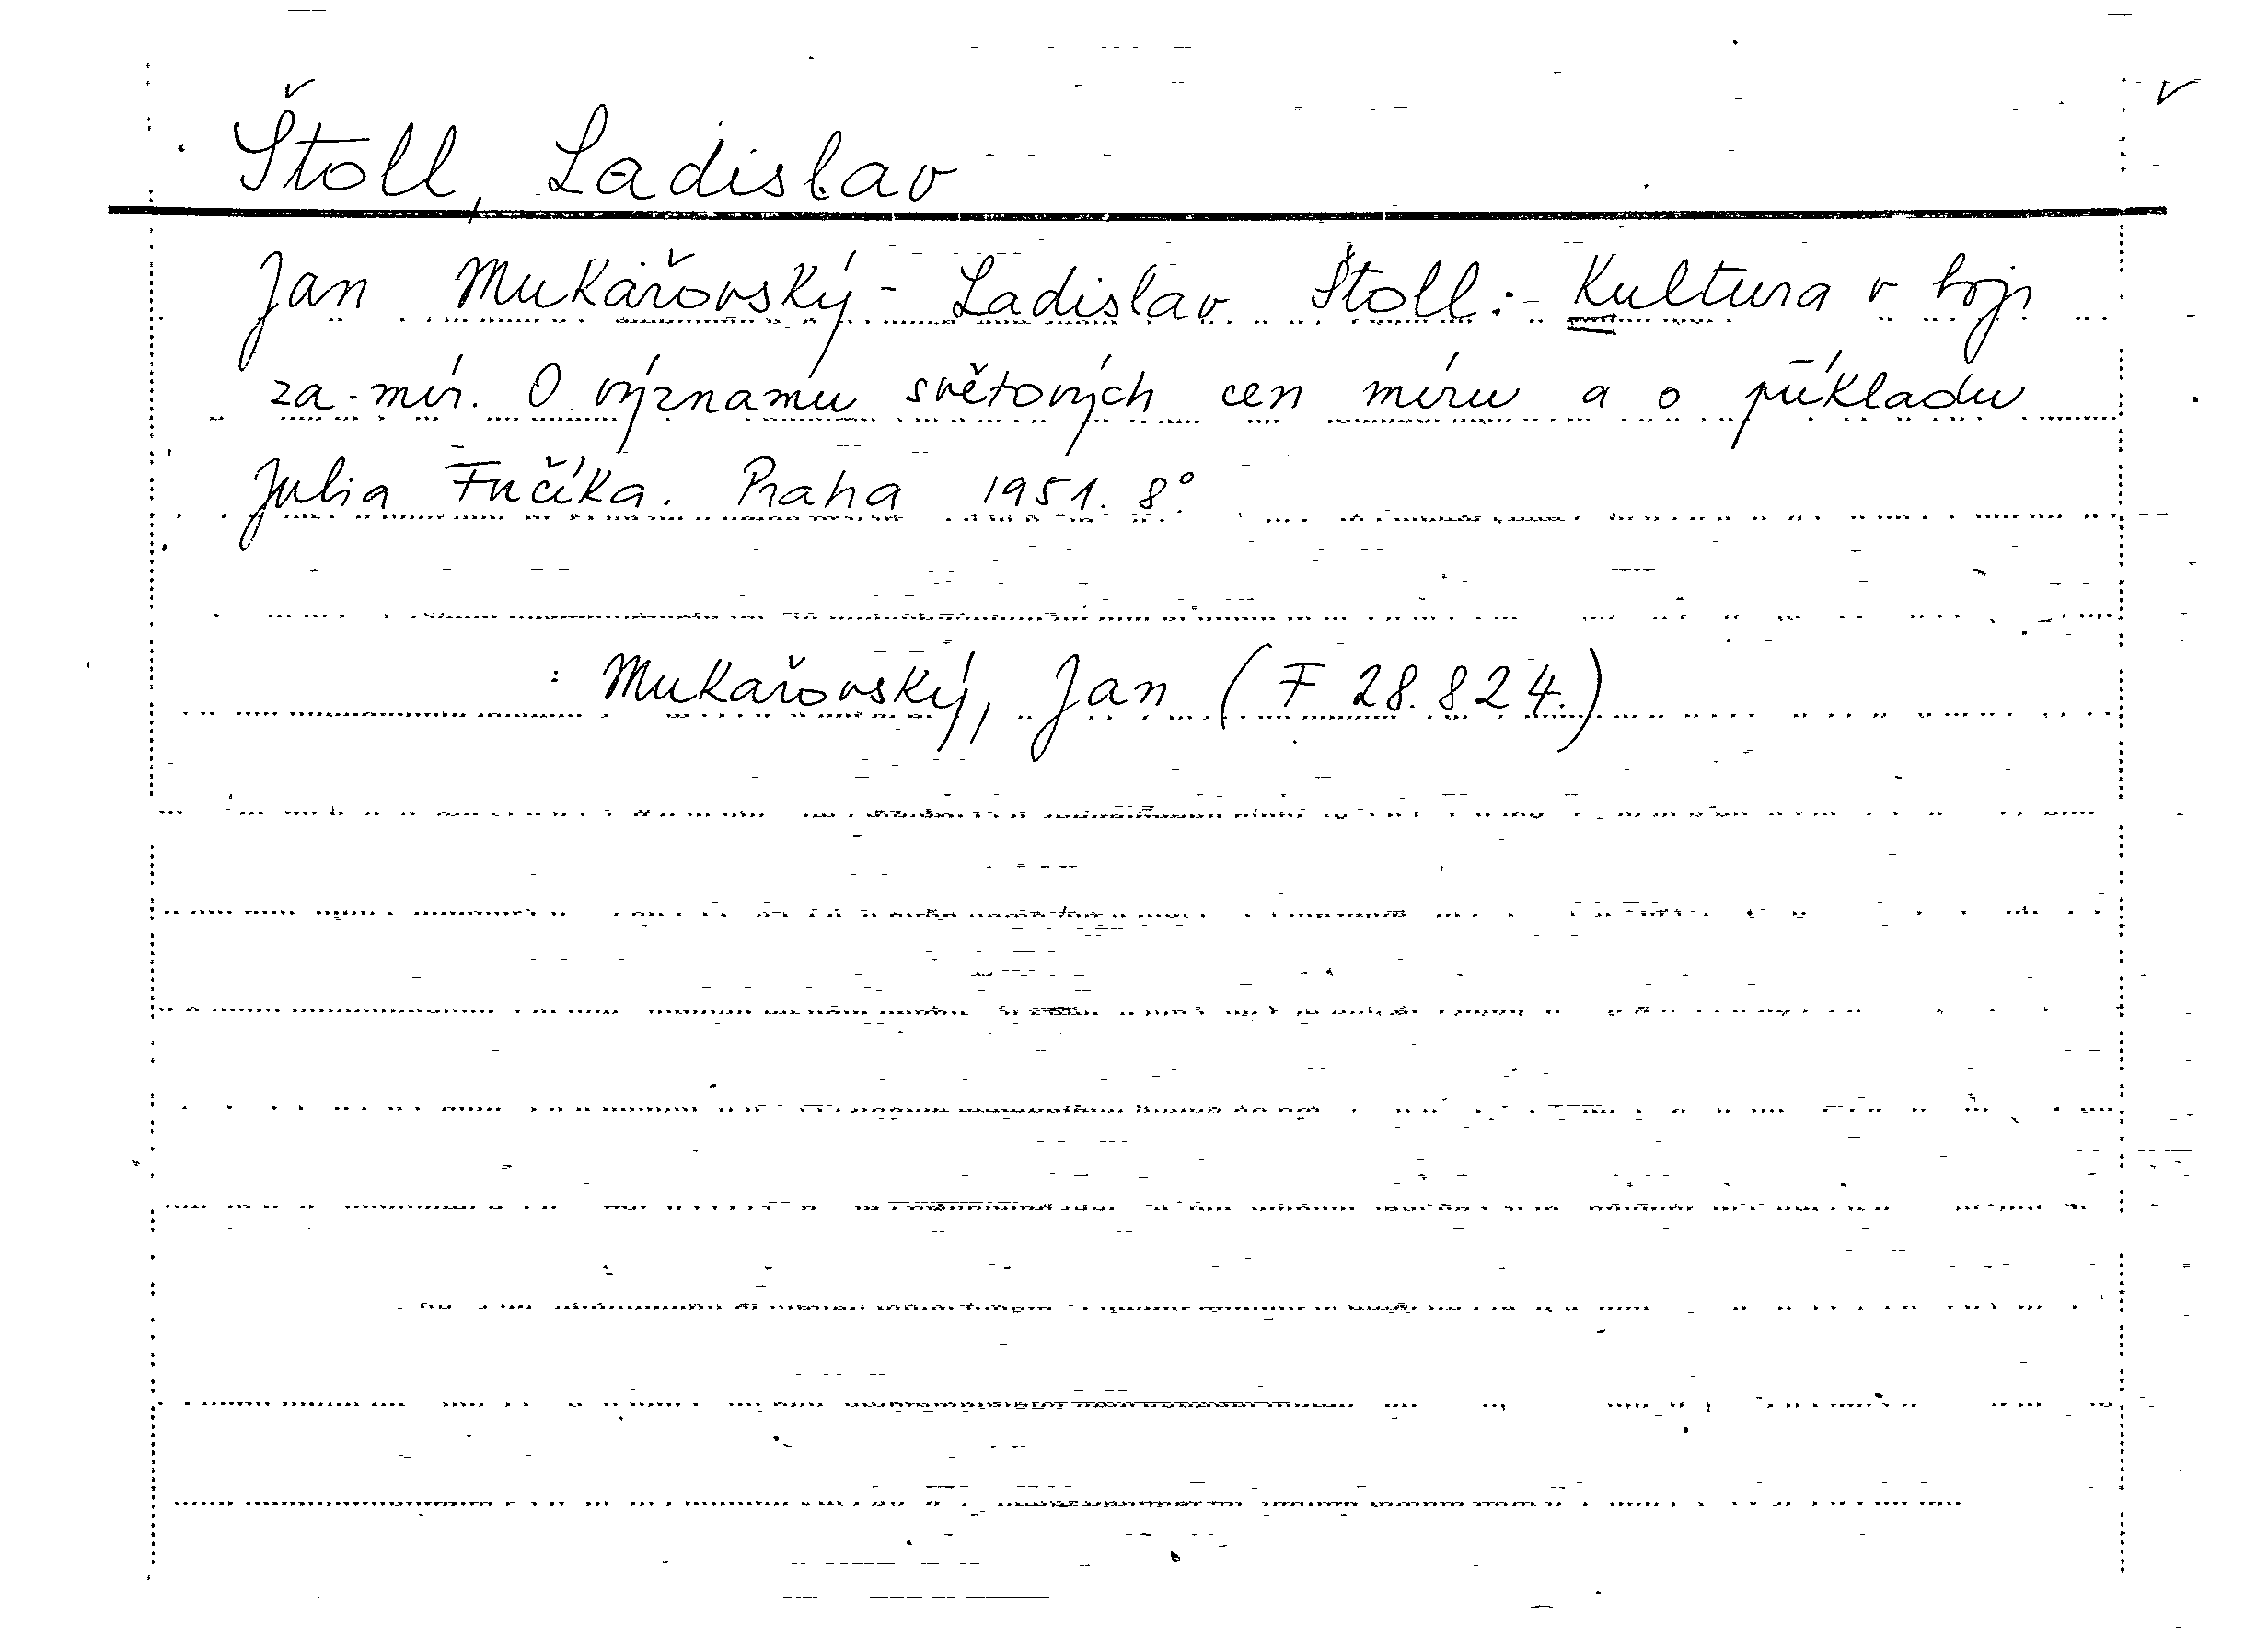 Štoll, Ladislav
Jan Mukařovský - Ladislav Štoll: Kultura v boji
za mír. O významu světových cen míru a o příkladu
Julia Fučíka. Praha 1951. 8°.
: Mukařovský, Jan (F 28.824.)